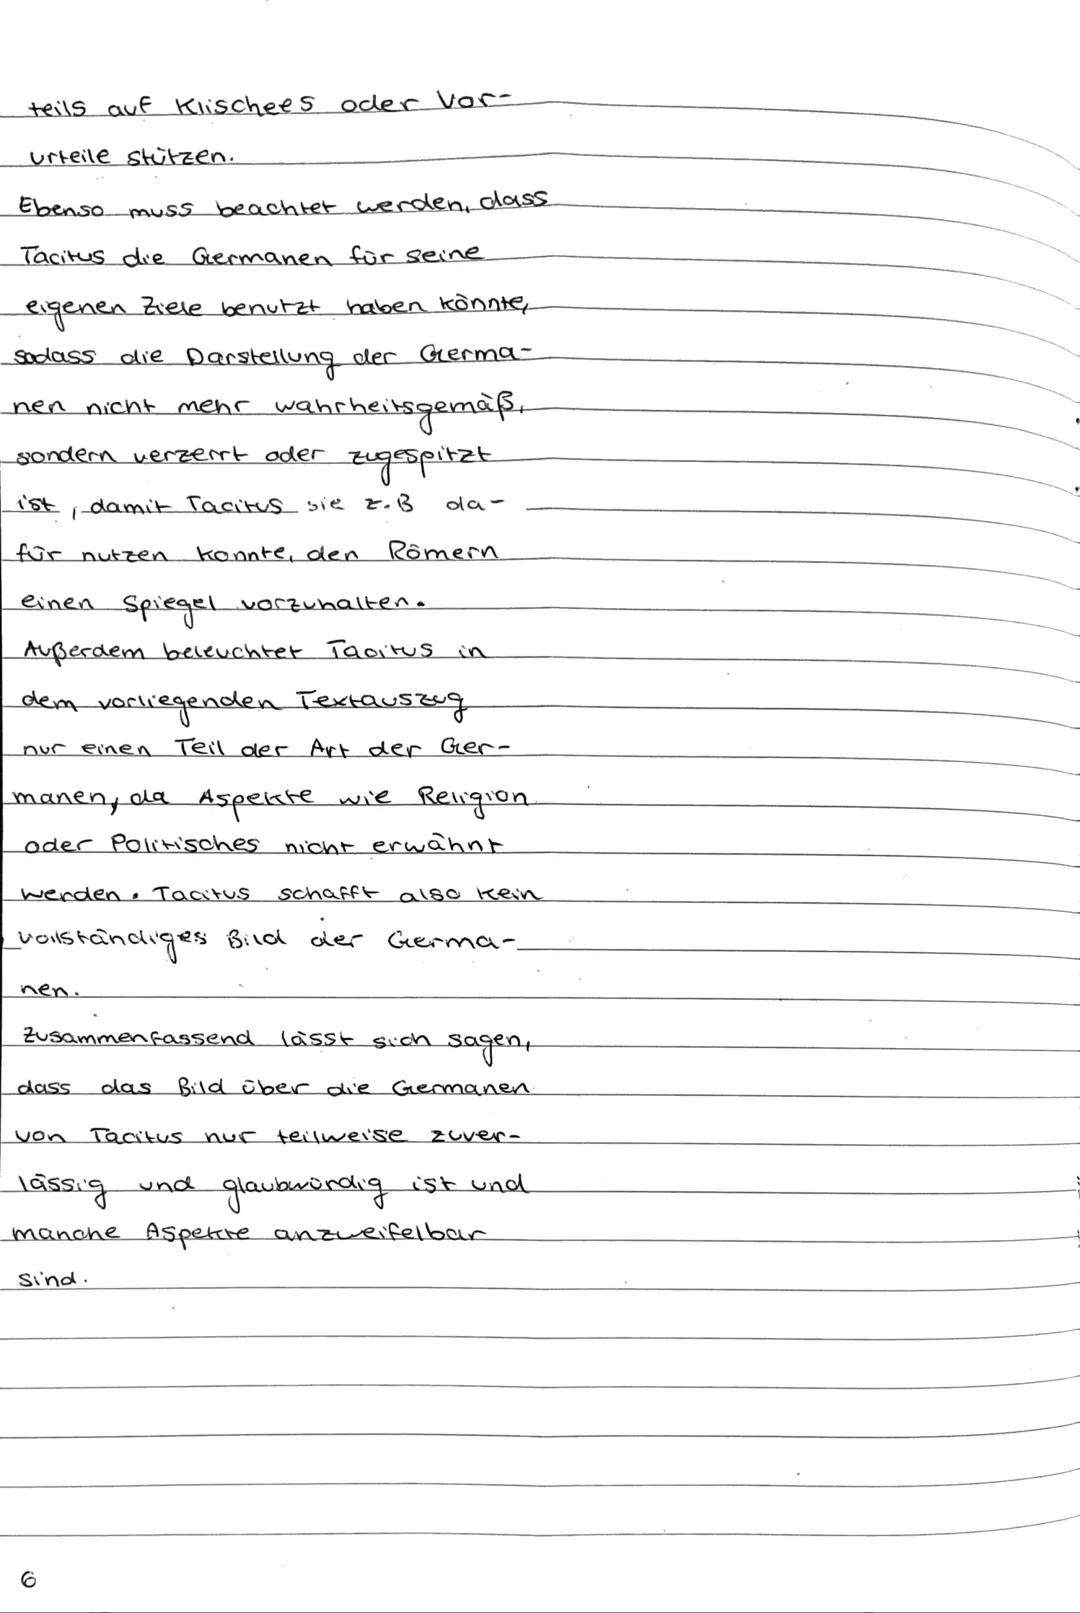 teils auf Klischees oder Vor-
urteile stützen.
Ebenso muss beachtet werden, dass
Tacitus die Germanen für seine
eigenen Ziele benutzt haben könnte,
sodass die Darstellung der Germa-
nen nicht mehr wahrheitsgemäß,
sondern verzerrt oder zugespitzt
ist, damit Tacitus sie z.B da-
für nutzen konnte, den Römern
einen Spiegel vorzuhalten.
Außerdem beleuchtet Tacitus in
dem vorliegenden Textauszug
nur einen Teil der Art der Ger-
manen, da Aspekte wie Religion
oder Politisches nicht erwähnt
werden. Tacitus schafft also kein
vollständiges Bild der Germa-
nen.
Zusammenfassend lässt sich sagen,
dass das Bild über die Germanen
von Tacitus nur teilweise zuver-
lässig und glaubwürdig ist und
manche Aspekte anzweifelbar
sind.
6